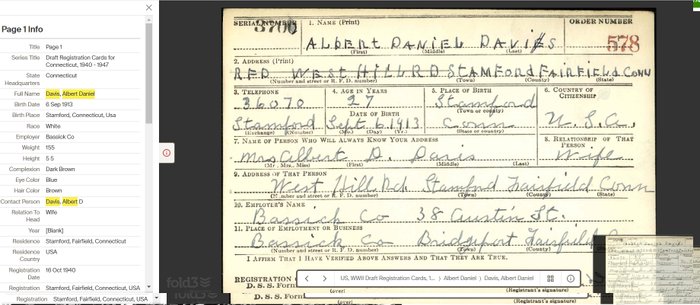 Page 1 Info
Title Page 1
Series Title Draft Registration Cards for Connecticut, 1940 - 1947
State Headquarters Connecticut
Full Name Davis, Albert Daniel
Birth Date 6 Sep 1913
Birth Place Stamford, Connecticut, Usa
Race White
Employer Bassick Co
Weight 155
Height 5 5
Complexion Dark Brown
Eye Color Blue
Hair Color Brown
Contact Person Davis, Albert D
Relation To Head Wife
Year [Blank]
Residence Stamford, Fairfield, Connecticut
Residence USA
Registration Date 16 Oct 1940
Registration Stamford, Fairfield, Connecticut, USA
SERIAL NUMBER 1. NAME (Print) ORDER NUMBER
3700 ALBERT DANIEL DAVIS 578
(First) (Middle) (Last)
2. ADDRESS (Print)
RFD WEST HILL RD STAMFORD FAIRFIELD CONN
(Number and street or R. F. D. number) (Town) (County) (State)
3. TELEPHONE 4. AGE IN YEARS 5. PLACE OF BIRTH 6. COUNTRY OF CITIZENSHIP
36070 27 Stamford
(Town or county)
DATE OF BIRTH
Stamford Sept. 6, 1913 Conn U.S.A.
(Exchange) (Number) (Mo.) (Day) (Yr.) (State or country)
7. NAME OF PERSON WHO WILL ALWAYS KNOW YOUR ADDRESS 8. RELATIONSHIP OF THAT PERSON
Mrs Albert D. Davis Wife
(Mr., Mrs., Miss) (First) (Middle) (Last)
9. ADDRESS OF THAT PERSON
West Hill Rd. Stamford Fairfield Conn
(Number and street or R. F. D. number) (Town) (County) (State)
10. EMPLOYER'S NAME
Bassick Co 38 Austin St.
11. PLACE OF EMPLOYMENT OR BUSINESS
Bassick Co Bridgeport Fairfield
I AFFIRM THAT I HAVE VERIFIED ABOVE ANSWERS AND THAT THEY ARE TRUE.
REGISTRATION
D. S. S. Form
US, WWII Draft Registration Cards, 1... Albert Daniel Davis, Albert Daniel
(over) (Registrant's signature)
D. S. S. Form
(Registrant's signature)
fold3
fold3